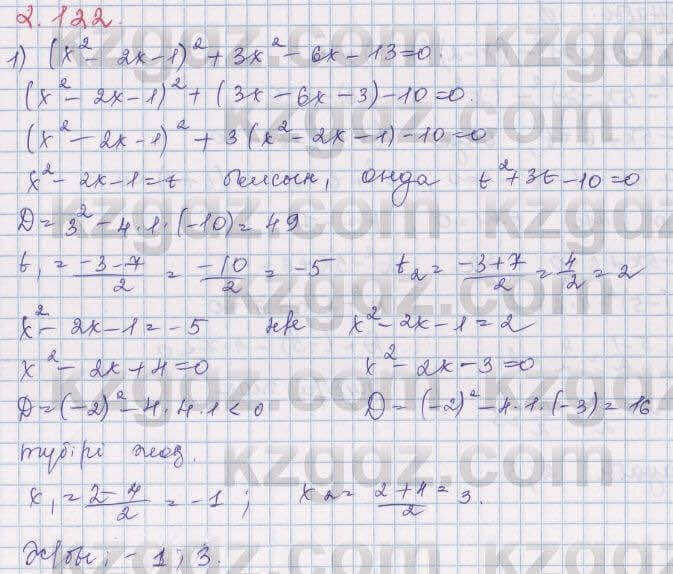 2.122.
1) (x² - 2x - 1)² + 3x² - 6x - 13 = 0.
(x² - 2x - 1)² + (3x - 6x - 3) - 10 = 0.
(x² - 2x - 1)² + 3(x² - 2x - 1) - 10 = 0
x² - 2x - 1 = t болсын, онда t² + 3t - 10 = 0
D = 3² - 4·1·(-10) = 49
t₁ = (-3-7)/2 = -10/2 = -5 t₂ = (-3+7)/2 = 4/2 = 2
x² - 2x - 1 = -5 не x² - 2x - 1 = 2
x² - 2x + 4 = 0 x² - 2x - 3 = 0
D = (-2)² - 4·4·1 < 0 D = (-2)² - 4·1·(-3) = 16
түбірі жоқ.
x₁ = (2-4)/2 = -1; x₂ = (2+4)/2 = 3.
Ж/бы: -1; 3.
kzgdz.com